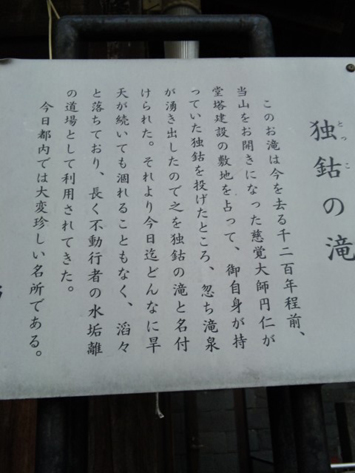 とっこ
独鈷の滝
このお滝は今を去る千二百年程前、
当山をお開きになった慈覚大師円仁が
堂塔建設の敷地を占って、御自身が持
っていた独鈷を投げたところ、忽ち滝泉
が湧き出したので之を独鈷の滝と名付
けられた。それより今日迄どんなに早
天が続いても涸れることもなく、滔々
と落ちており、長く不動行者の水垢離
の道場として利用されてきた。
今日都内では大変珍しい名所である。